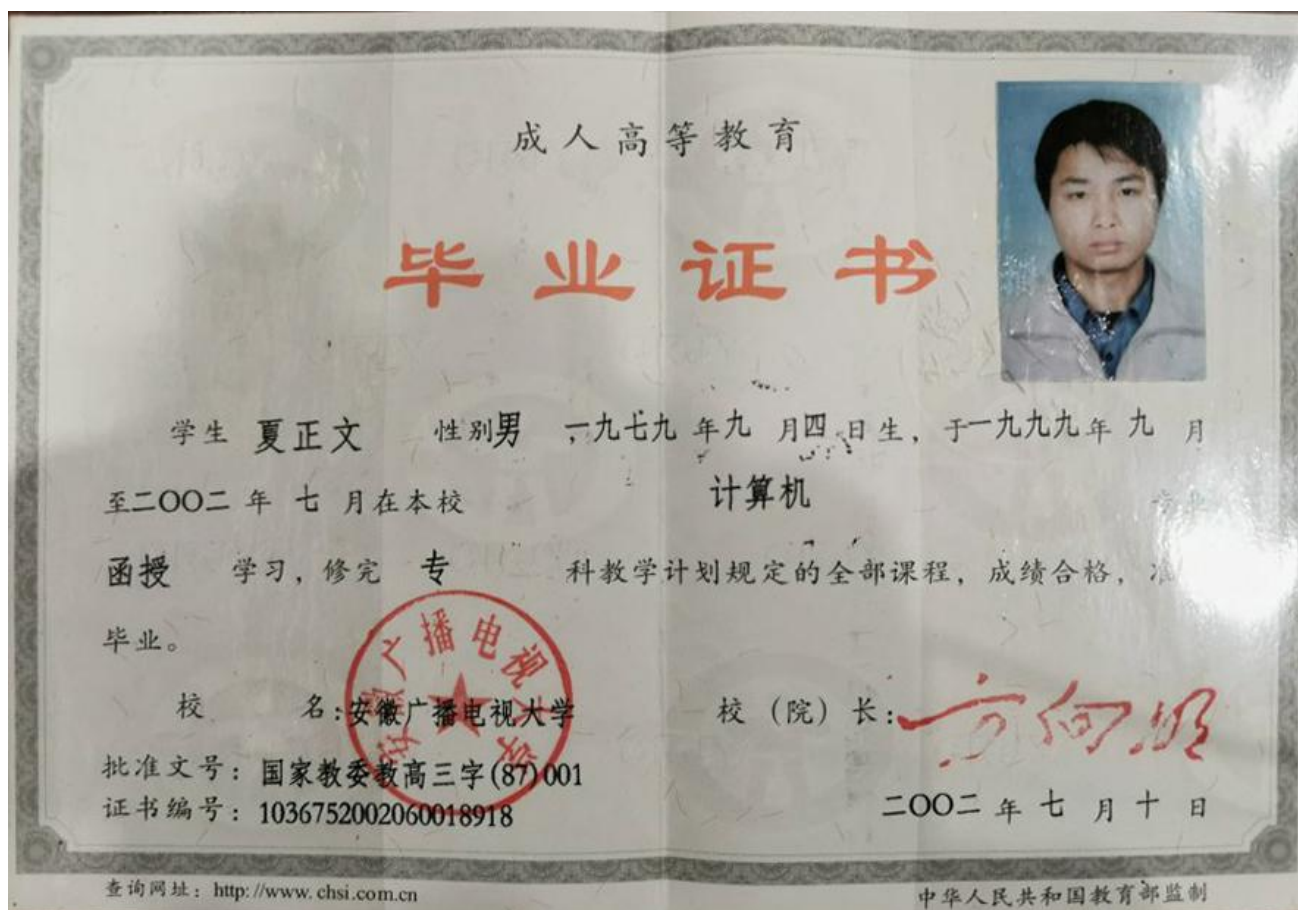 成人高等教育
毕业证书
学生 夏正文 性别男 一九七九 年九 月四 日生，于一九九九年 九 月
至二〇〇二 年 七 月在本校 计算机 专业
函授 学习，修完 专 科教学计划规定的全部课程，成绩合格，准
毕业。
安徽广播电视大学
校 名：安徽广播电视大学 校（院）长：方向明
批准文号：国家教委教高三字(87)001
证书编号：103675200206001​8918 二〇〇二 年 七 月 十 日
查询网址：http://www.chsi.com.cn 中华人民共和国教育部监制